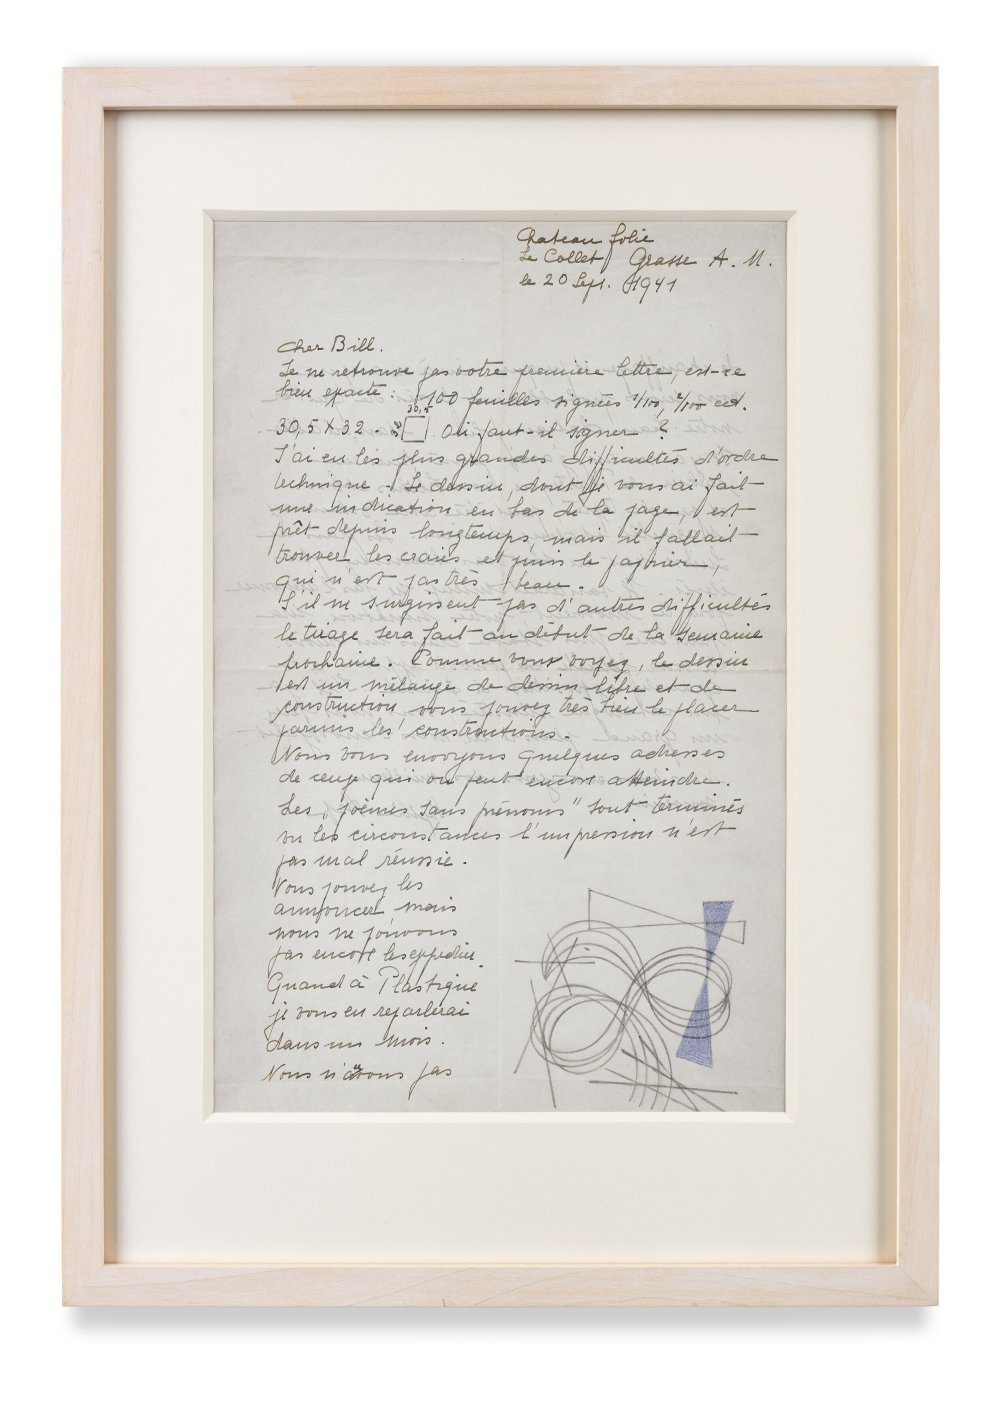 Chateau folie
Le Collet Grasse A. M.
le 20 Sept. 1941
Cher Bill.
Je ne retrouve pas votre première lettre, est-ce
bien exacte : 100 feuilles signées 1/100, 2/100 ect.
30,5
30,5 X 32 - 32 Où faut-il signer ?
J'ai eu les plus grandes difficultés d'ordre
technique. Le dessin, dont je vous ai fait
une indication en bas de la page, est
prêt depuis longtemps, mais il fallait
trouver les craies et puis le papier,
qui n'est pas très beau.
S'il ne surgissent pas d'autres difficultés
le tirage sera fait au début de la semaine
prochaine. Comme vous voyez, le dessin
est un mélange de dessin libre et de
construction, vous pouvez très bien le placer
parmis les constructions.
Nous vous envoyons quelques adresses
de ceux qui on peut encore atteindre.
Les „poèmes sans prénoms" sont terminés
vu les circonstances l'impression n'est
pas mal réussie.
Vous pouvez les
annoncer mais
nous ne pouvons
pas encore les expedier.
Quand à Plastique
je vous en reparlerai
dans un mois.
Nous n'avons pas